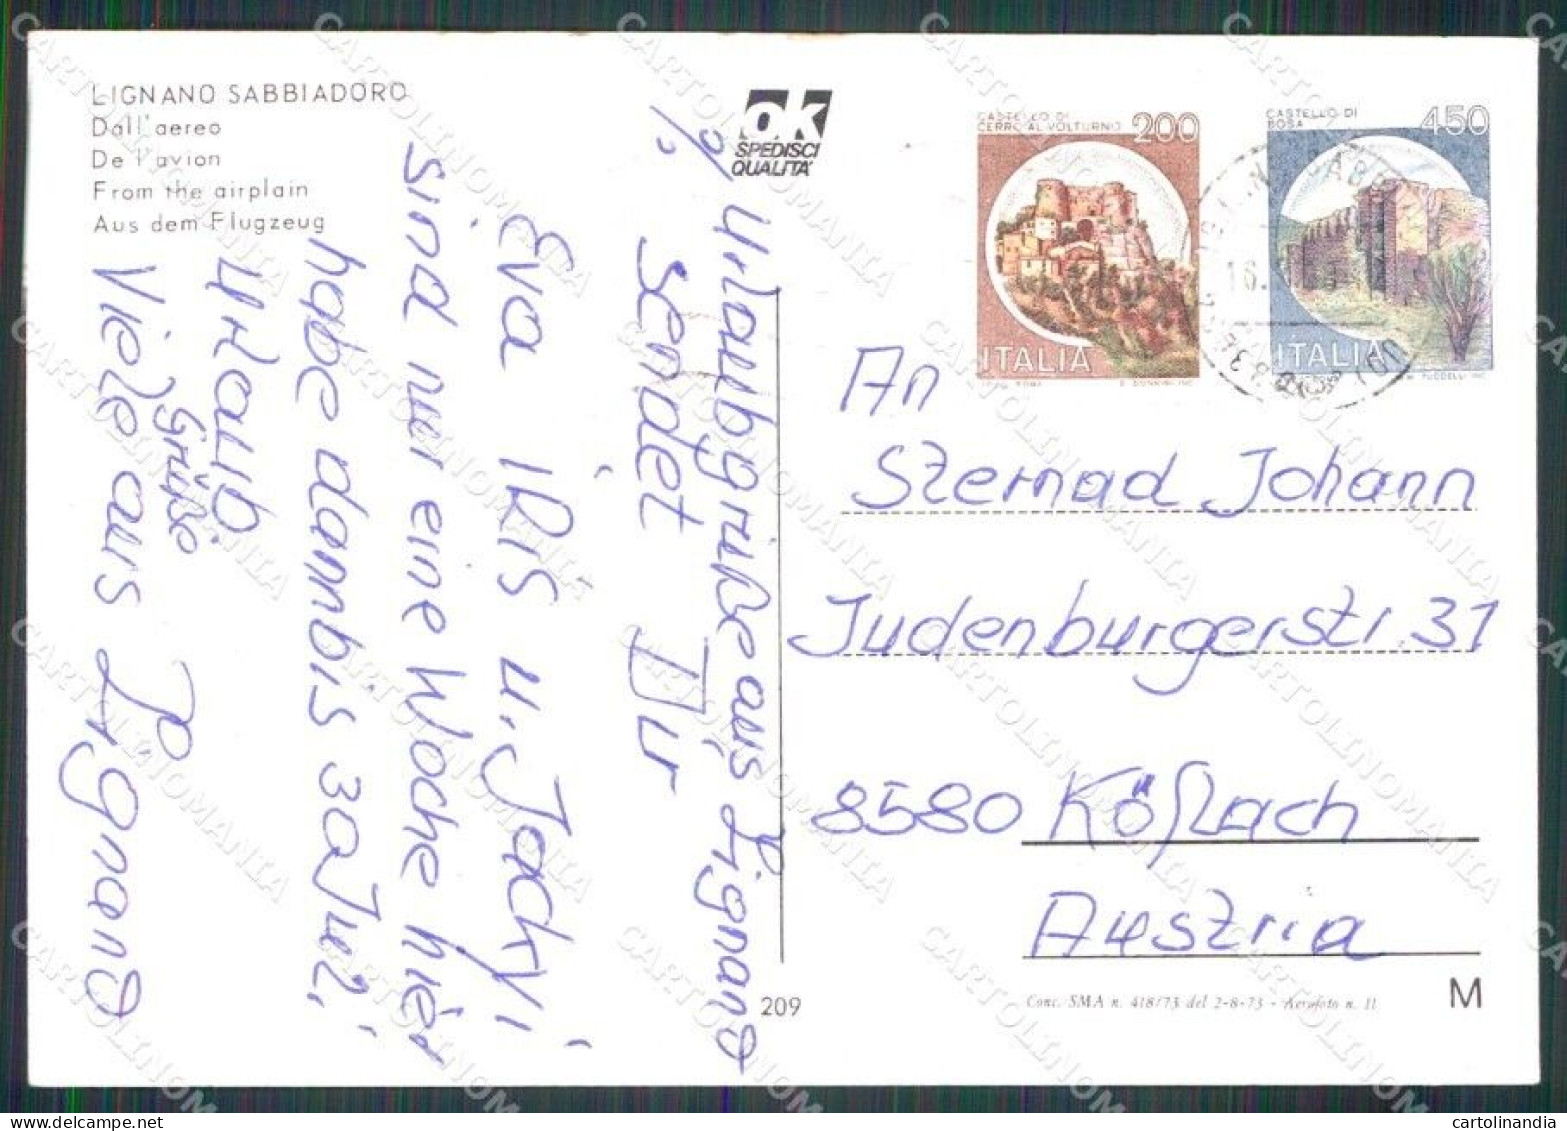 LIGNANO SABBIADORO
Dall'aereo
De l'avion
From the airplain
Aus dem Flugzeug
OK
SPEDISCI
QUALITA'
CASTELLO DI
CERRO AL VOLTURNO
200
ITALIA
CASTELLO DI
BOSA
450
ITALIA
%
Urlaubgrüße aus Lignano
sendet Dir
Eva IRIS u. Jackyi
sind nur eine Woche hier
habe dann bis 30 Juli
Urlaub
Viele Grüße
aus Lignano
An
Sternad Johann
Judenburgerstr. 31
8580 Köflach
Austria
209
Conc. SMA n. 418/73 del 2-8-73 - Aerofoto n. 11
M
CARTOLINOMANIA
cartolinandia